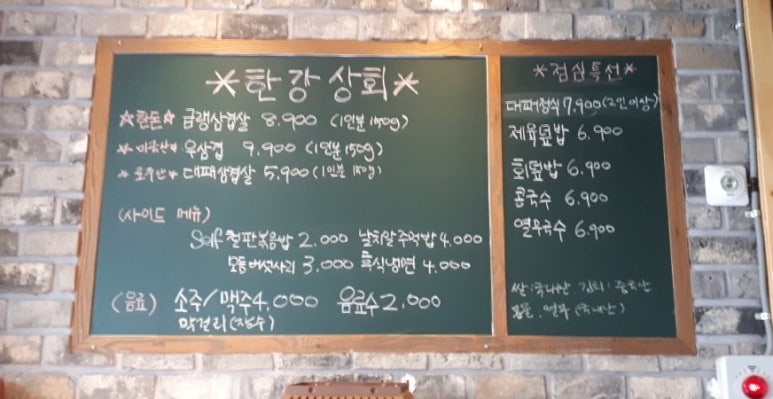 *한강상회*
☆한돈☆ 급랭삼겹살 8.900 (1인분 150g)
*미국산* 우삼겹 9.900 (1인분 150g)
*호주산* 대패삼겹살 5.900 (1인분 150g)
(사이드 메뉴)
Self 철판볶음밥 2.000 날치알주먹밥 4.000
모둠버섯사리 3.000 후식냉면 4.000
(음료) 소주/맥주 4,000 음료수 2,000
막걸리(장수)
*점심특선*
대패정식 7,900 (2인이상)
제육덮밥 6.900
회덮밥 6.900
콩국수 6.900
열무국수 6.900
쌀:국내산, 김치: 중국산
열무 (국내산)